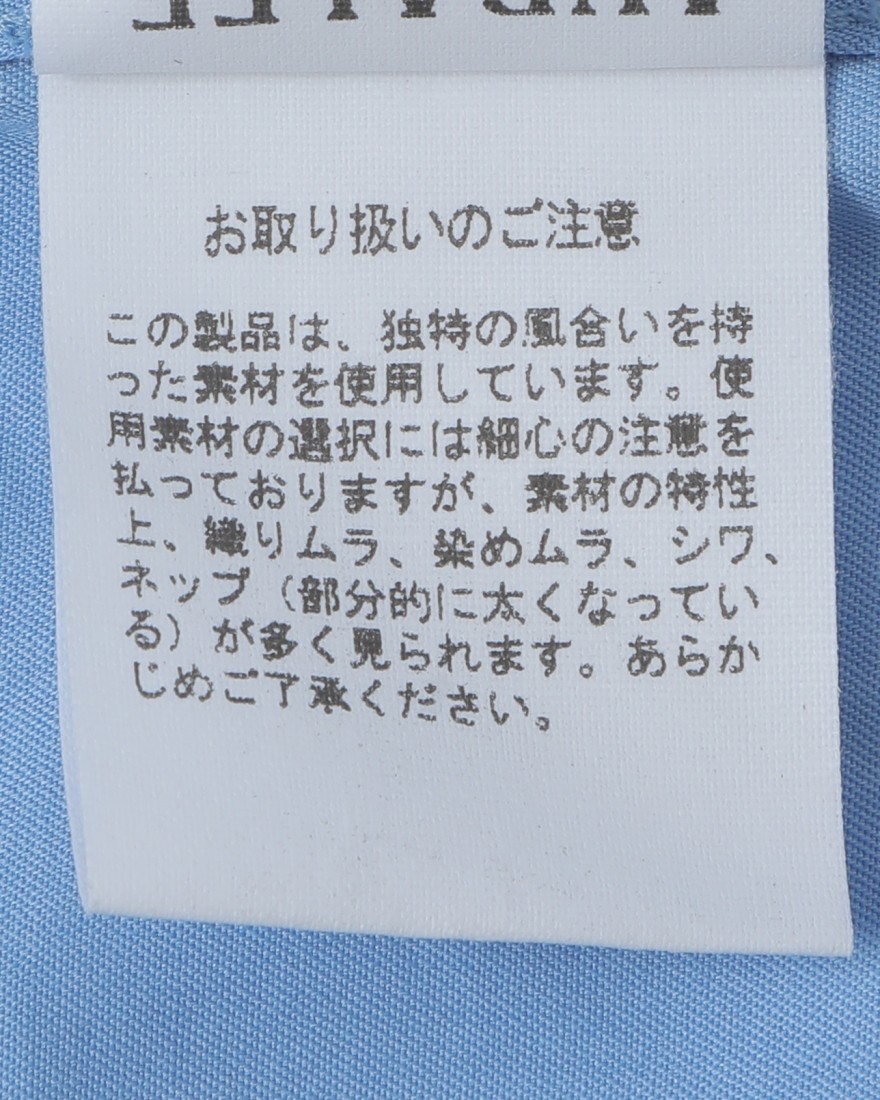 お取り扱いのご注意
この製品は、独特の風合いを持
った素材を使用しています。使
用素材の選択には細心の注意を
払っておりますが、素材の特性
上、織りムラ、染めムラ、シワ、
ネップ（部分的に太くなってい
る）が多く見られます。あらか
じめご了承ください。